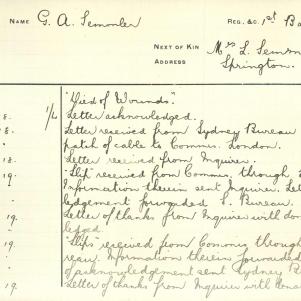 NAME G. A. Semmler REG. &c. 1st Ba
NEXT OF KIN Mrs L. Semm
ADDRESS Springton.
"Died of Wounds".
8. 1/4 Letter acknowledged.
18. Letter received from Sydney Bureau
patch of cable to Commis. London.
18. Letter received from Inquirer.
19. "Slip" received from Commis. through S
Information therein sent Inquirer. Let
ledgement forwarded S. Bureau.
19. Letter of thanks from Inquirer with don
ledged.
19. "Slips" received from Commis through
reau. Information therein forwarded
of acknowledgement sent Sydney B
19. Letter of thanks from Inquirer with